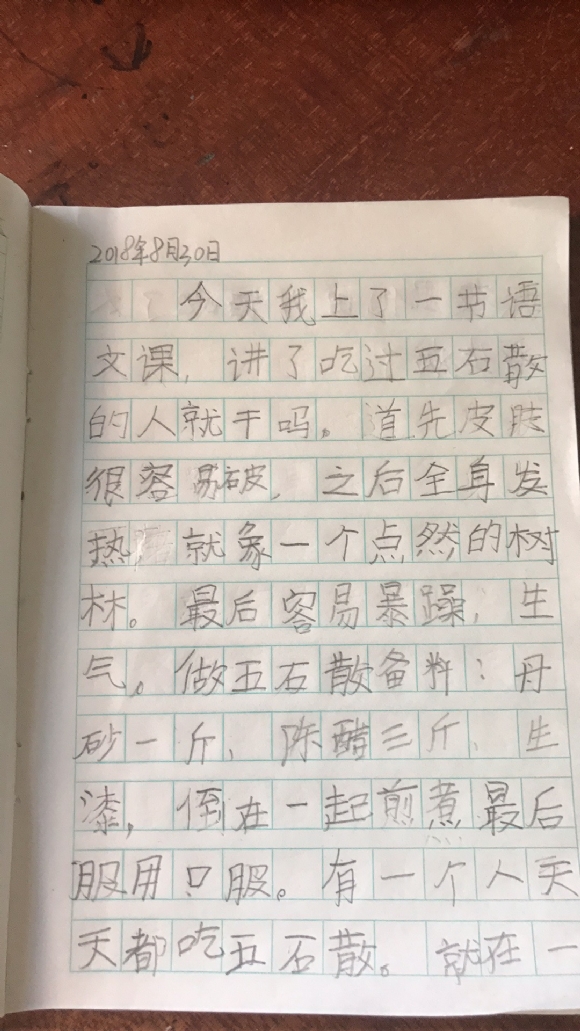 2018年8月30日
今天我上了一节语
文课，讲了吃过五石散
的人就干吗。首先皮肤
很容易破，之后全身发
热 就象一个点然的树
林。最后容易暴躁，生
气。做五石散备料：丹
砂一斤、陈醋三斤、生
漆，倒在一起煎煮最后
服用口服。有一个人天
天都吃五石散。就在一